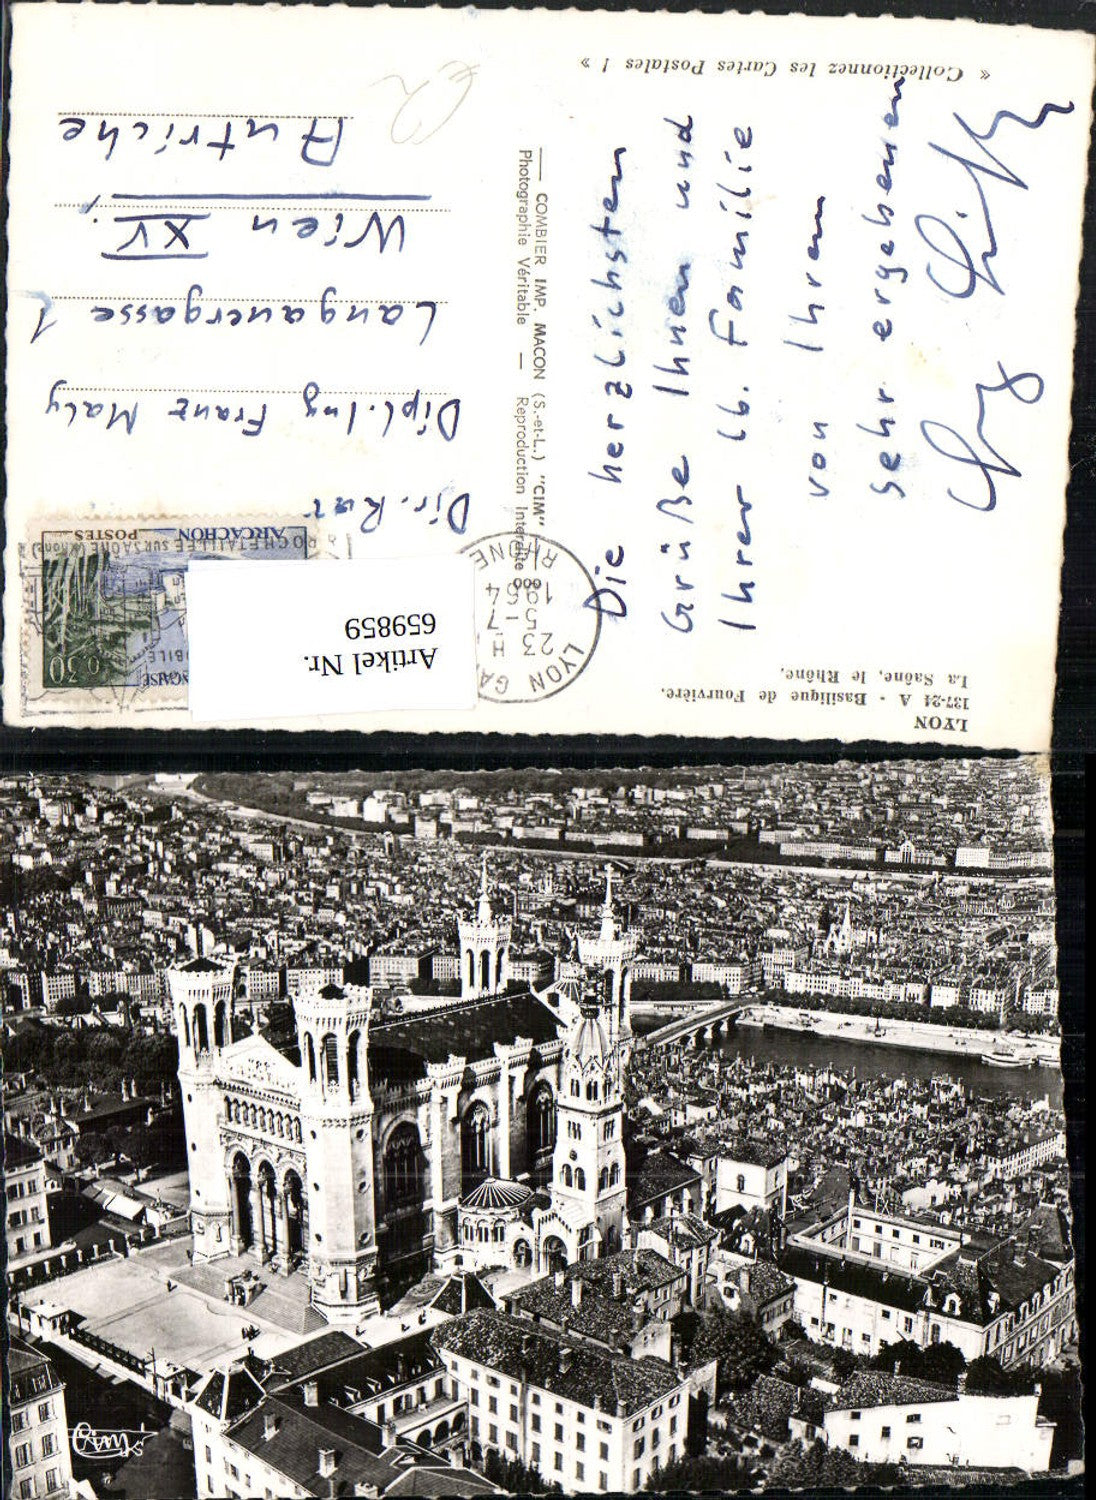 « Collectionnez les Cartes Postales ! »
LYON
137-24 A - Basilique de Fourvière.
La Saône, le Rhône.
Die herzlichsten
Grüße Ihnen und
Ihrer lb. Familie
von Ihrem
sehr ergebenen
COMBIER IMP. MACON (S.-et-L.) "CIM"
Photographie Véritable — Reproduction Interdite
LYON GA
23 H
5-7
1964
RHONE
ROCHETAILLEE SUR SAONE (Rhône)
ARCACHON
POSTES
0,30
Artikel Nr.
659859
Dir. Rat
Dipl. Ing Franz Maly
Langauergasse 1
Wien XV.
Autriche
Cim